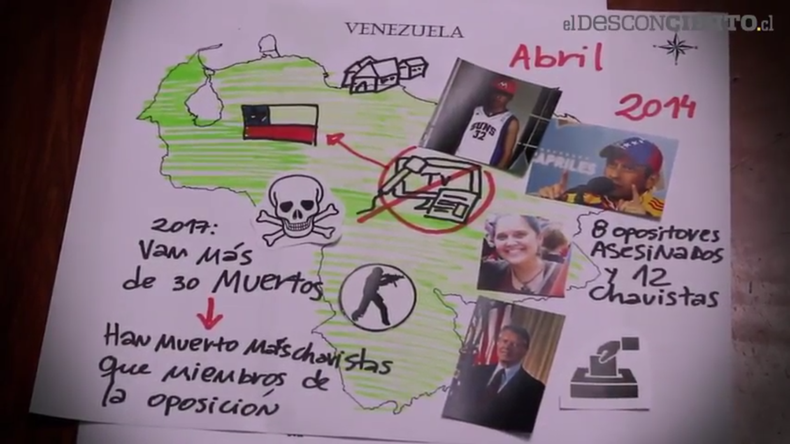 elDESCONCIERTO.cl
VENEZUELA
Abril
2014
SUNS
32
CAPRILES
TV
8 opositores
ASESINADOS
y 12
chavistas
2017:
Van Más
de 30 Muertos
Han Muerto Más chavistas
que miembros de
la oposición